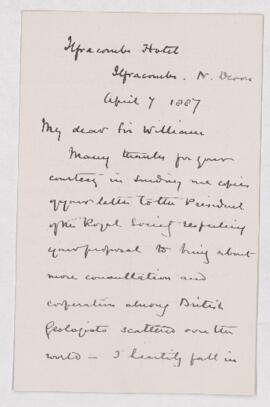 Ilfracombe Hotel
Ilfracombe. N. Devon
April 7 1887
My dear Sir William
Many thanks for your
courtesy in sending me copies
of your letter to the President
of the Royal Society respecting
your proposal to bring about
more consultation and
cooperation among British
Geologists scattered over the
world – I heartily fall in